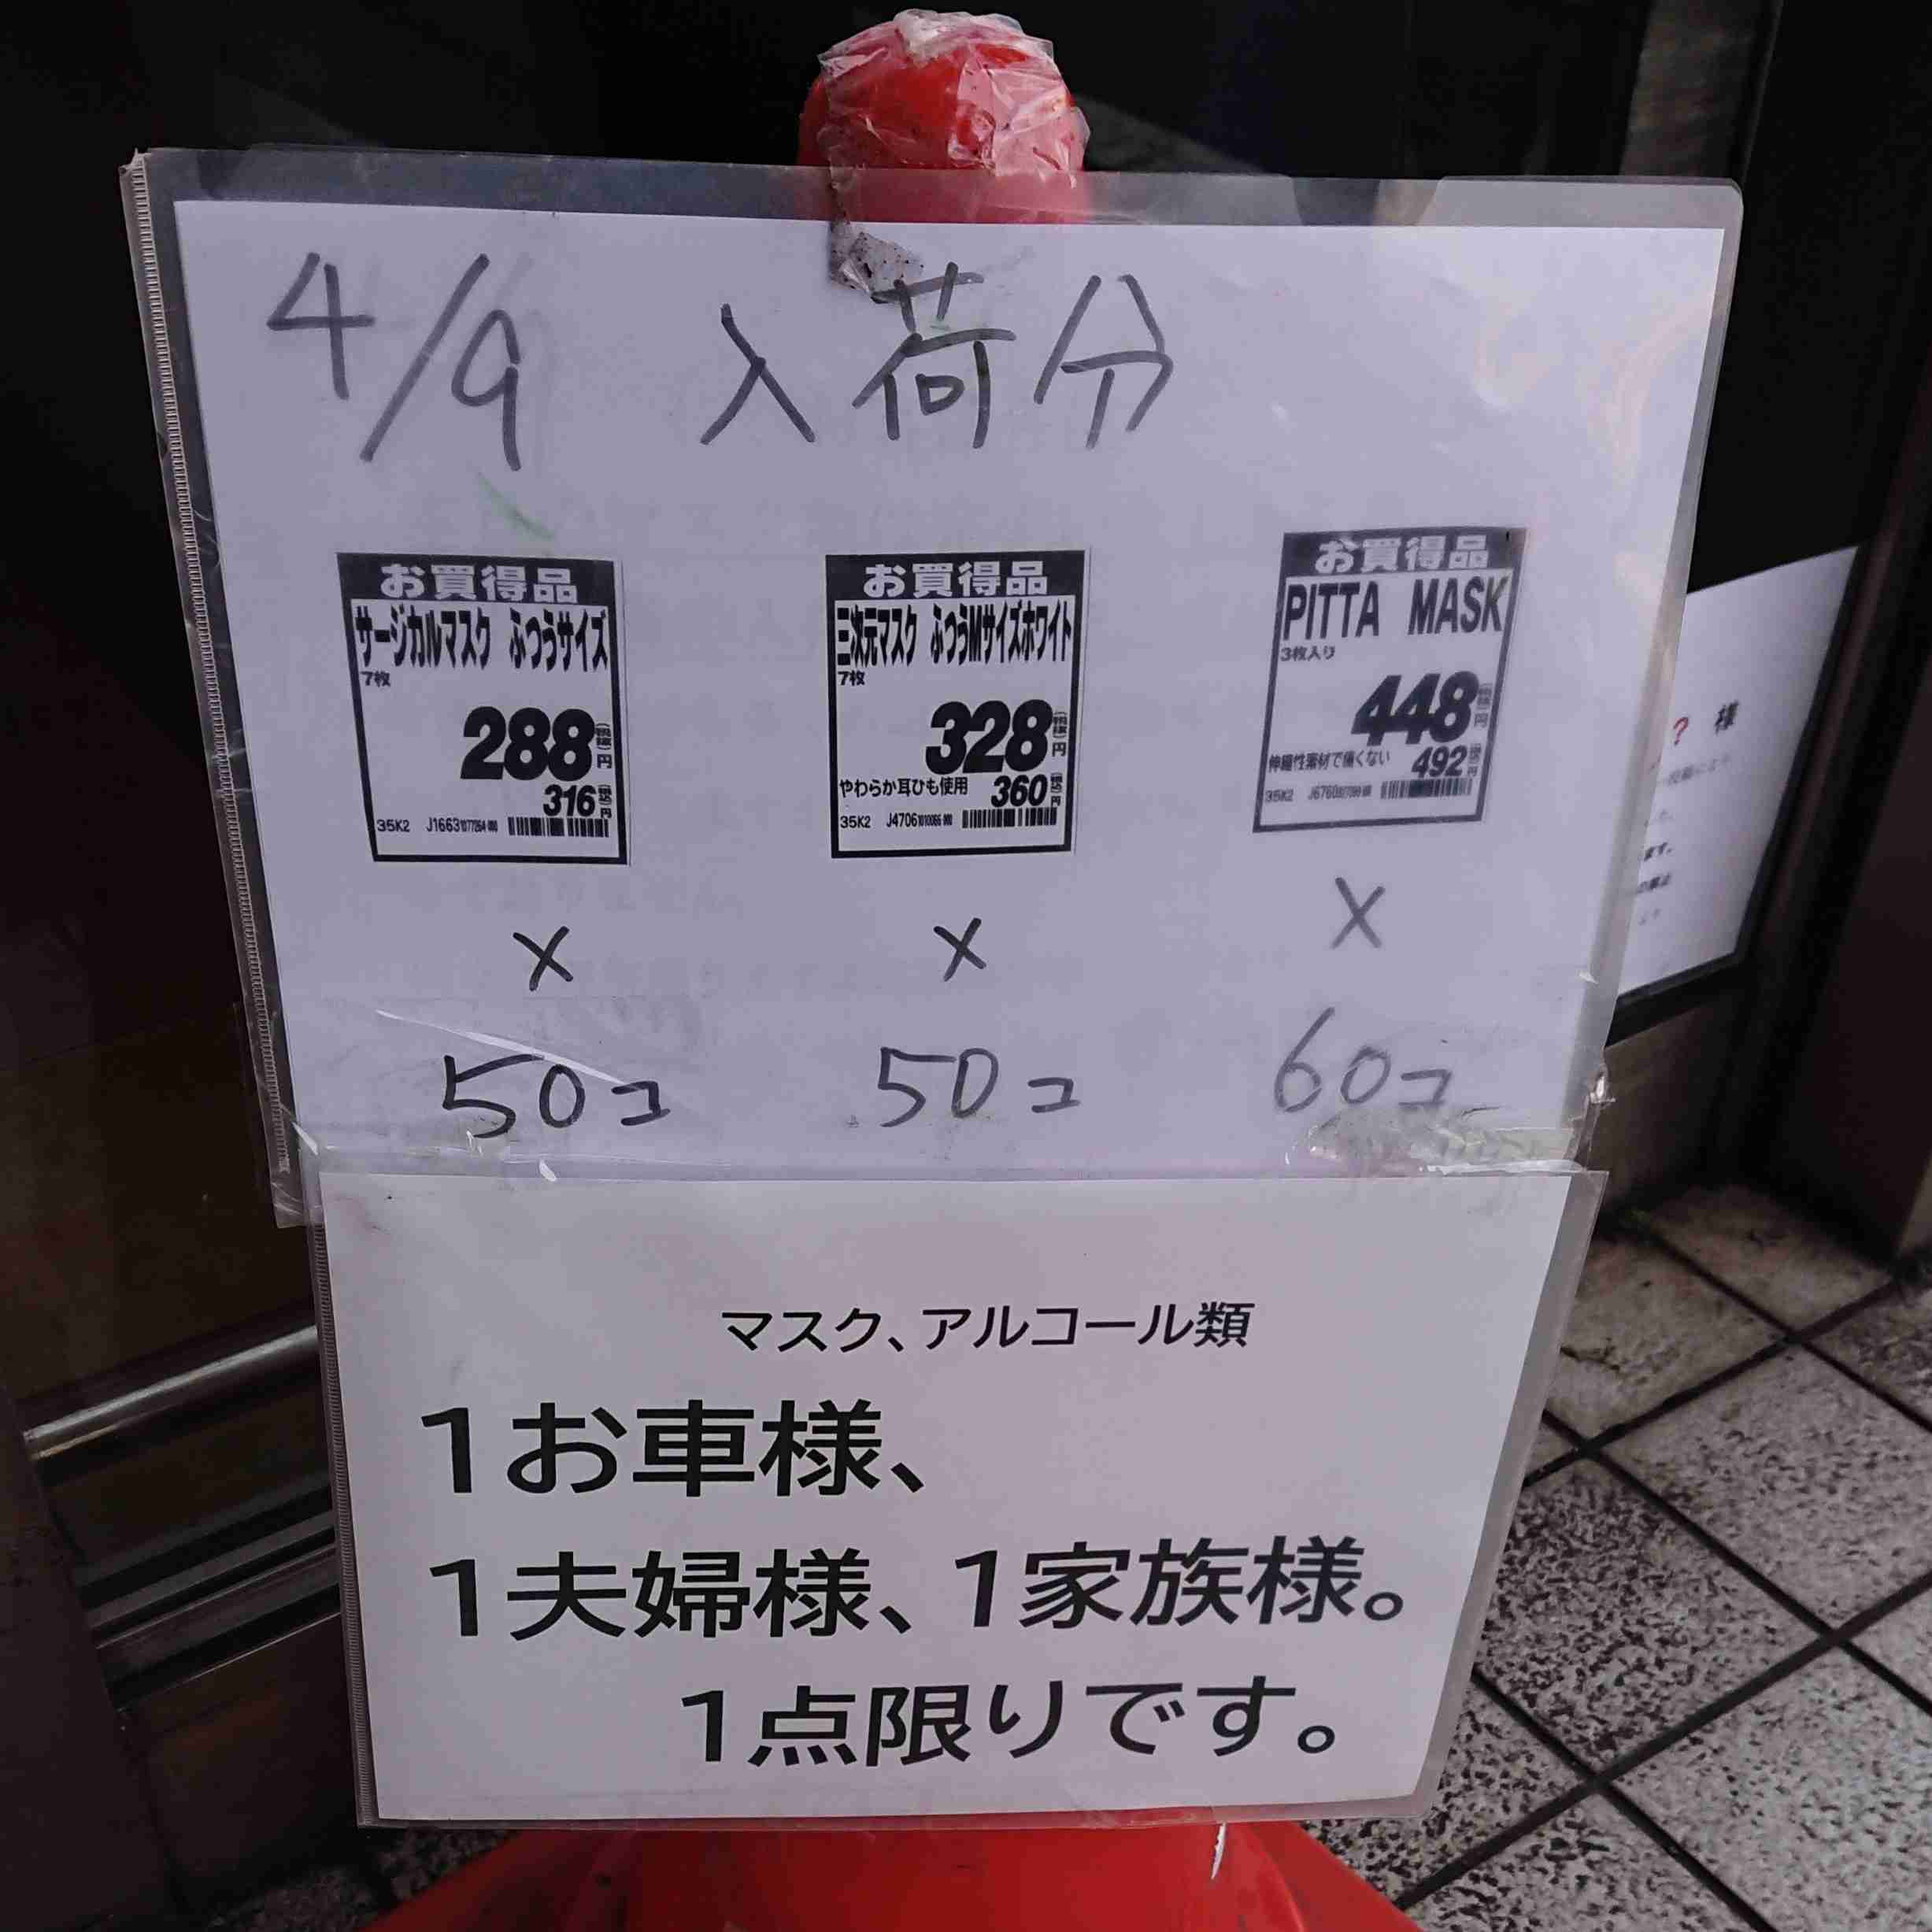 4/9 入荷分
お買得品
サージカルマスク ふつうサイズ
7枚
288(税抜)円
316(税込)円
35K2 J1663
お買得品
三次元マスク ふつうMサイズホワイト
7枚
328(税抜)円
やわらか耳ひも使用 360(税込)円
35K2 J4706
お買得品
PITTA MASK
3枚入り
448(税抜)円
伸縮性素材で痛くない 492(税込)円
35K2 J6760
× × ×
50コ 50コ 60コ
マスク、アルコール類
1お車様、
1夫婦様、1家族様。
1点限りです。
? 様
ます。